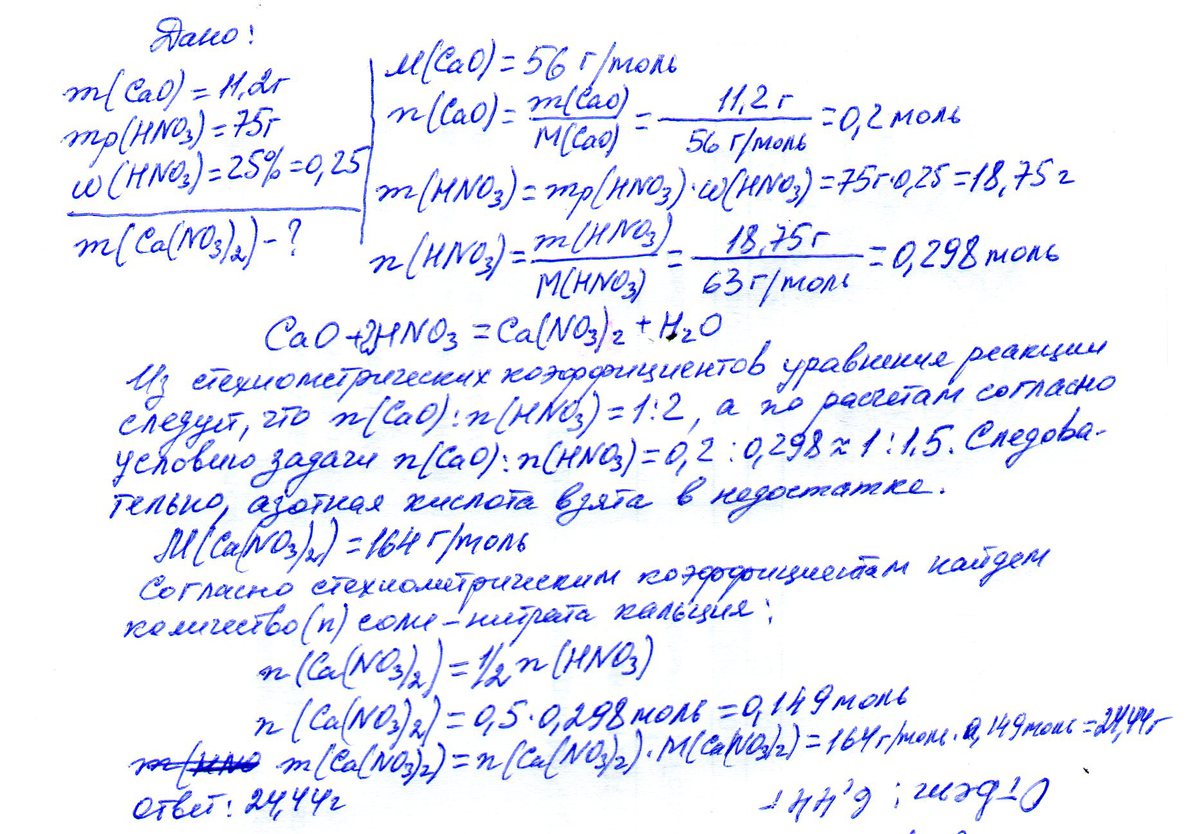 Дано:
m(CaO) = 11,2г
mр(HNO₃) = 75г
ω(HNO₃) = 25% = 0,25
m(Ca(NO₃)₂) - ?
M(CaO) = 56 г/моль
n(CaO) = m(CaO)/M(CaO) = 11,2 г/56 г/моль = 0,2 моль
m(HNO₃) = mр(HNO₃)·ω(HNO₃) = 75г·0,25 = 18,75 г
n(HNO₃) = m(HNO₃)/M(HNO₃) = 18,75г/63 г/моль = 0,298 моль
CaO + 2HNO₃ = Ca(NO₃)₂ + H₂O
Из стехиометрических коэффициентов уравнения реакции
следует, что n(CaO) : n(HNO₃) = 1 : 2, а по расчетам согласно
условию задачи n(CaO) : n(HNO₃) = 0,2 : 0,298 ≈ 1 : 1,5. Следова-
тельно, азотная кислота взята в недостатке.
M(Ca(NO₃)₂) = 164 г/моль
Согласно стехиометрическим коэффициентам найдем
количество (n) соли - нитрата кальция:
n(Ca(NO₃)₂) = 1/2 n(HNO₃)
n(Ca(NO₃)₂) = 0,5 · 0,298 моль = 0,149 моль
m(Ca(NO₃)₂) = n(Ca(NO₃)₂) · M(Ca(NO₃)₂) = 164 г/моль · 0,149 моль = 24,44 г
Ответ: 24,44 г
Ответ: 6,44 г